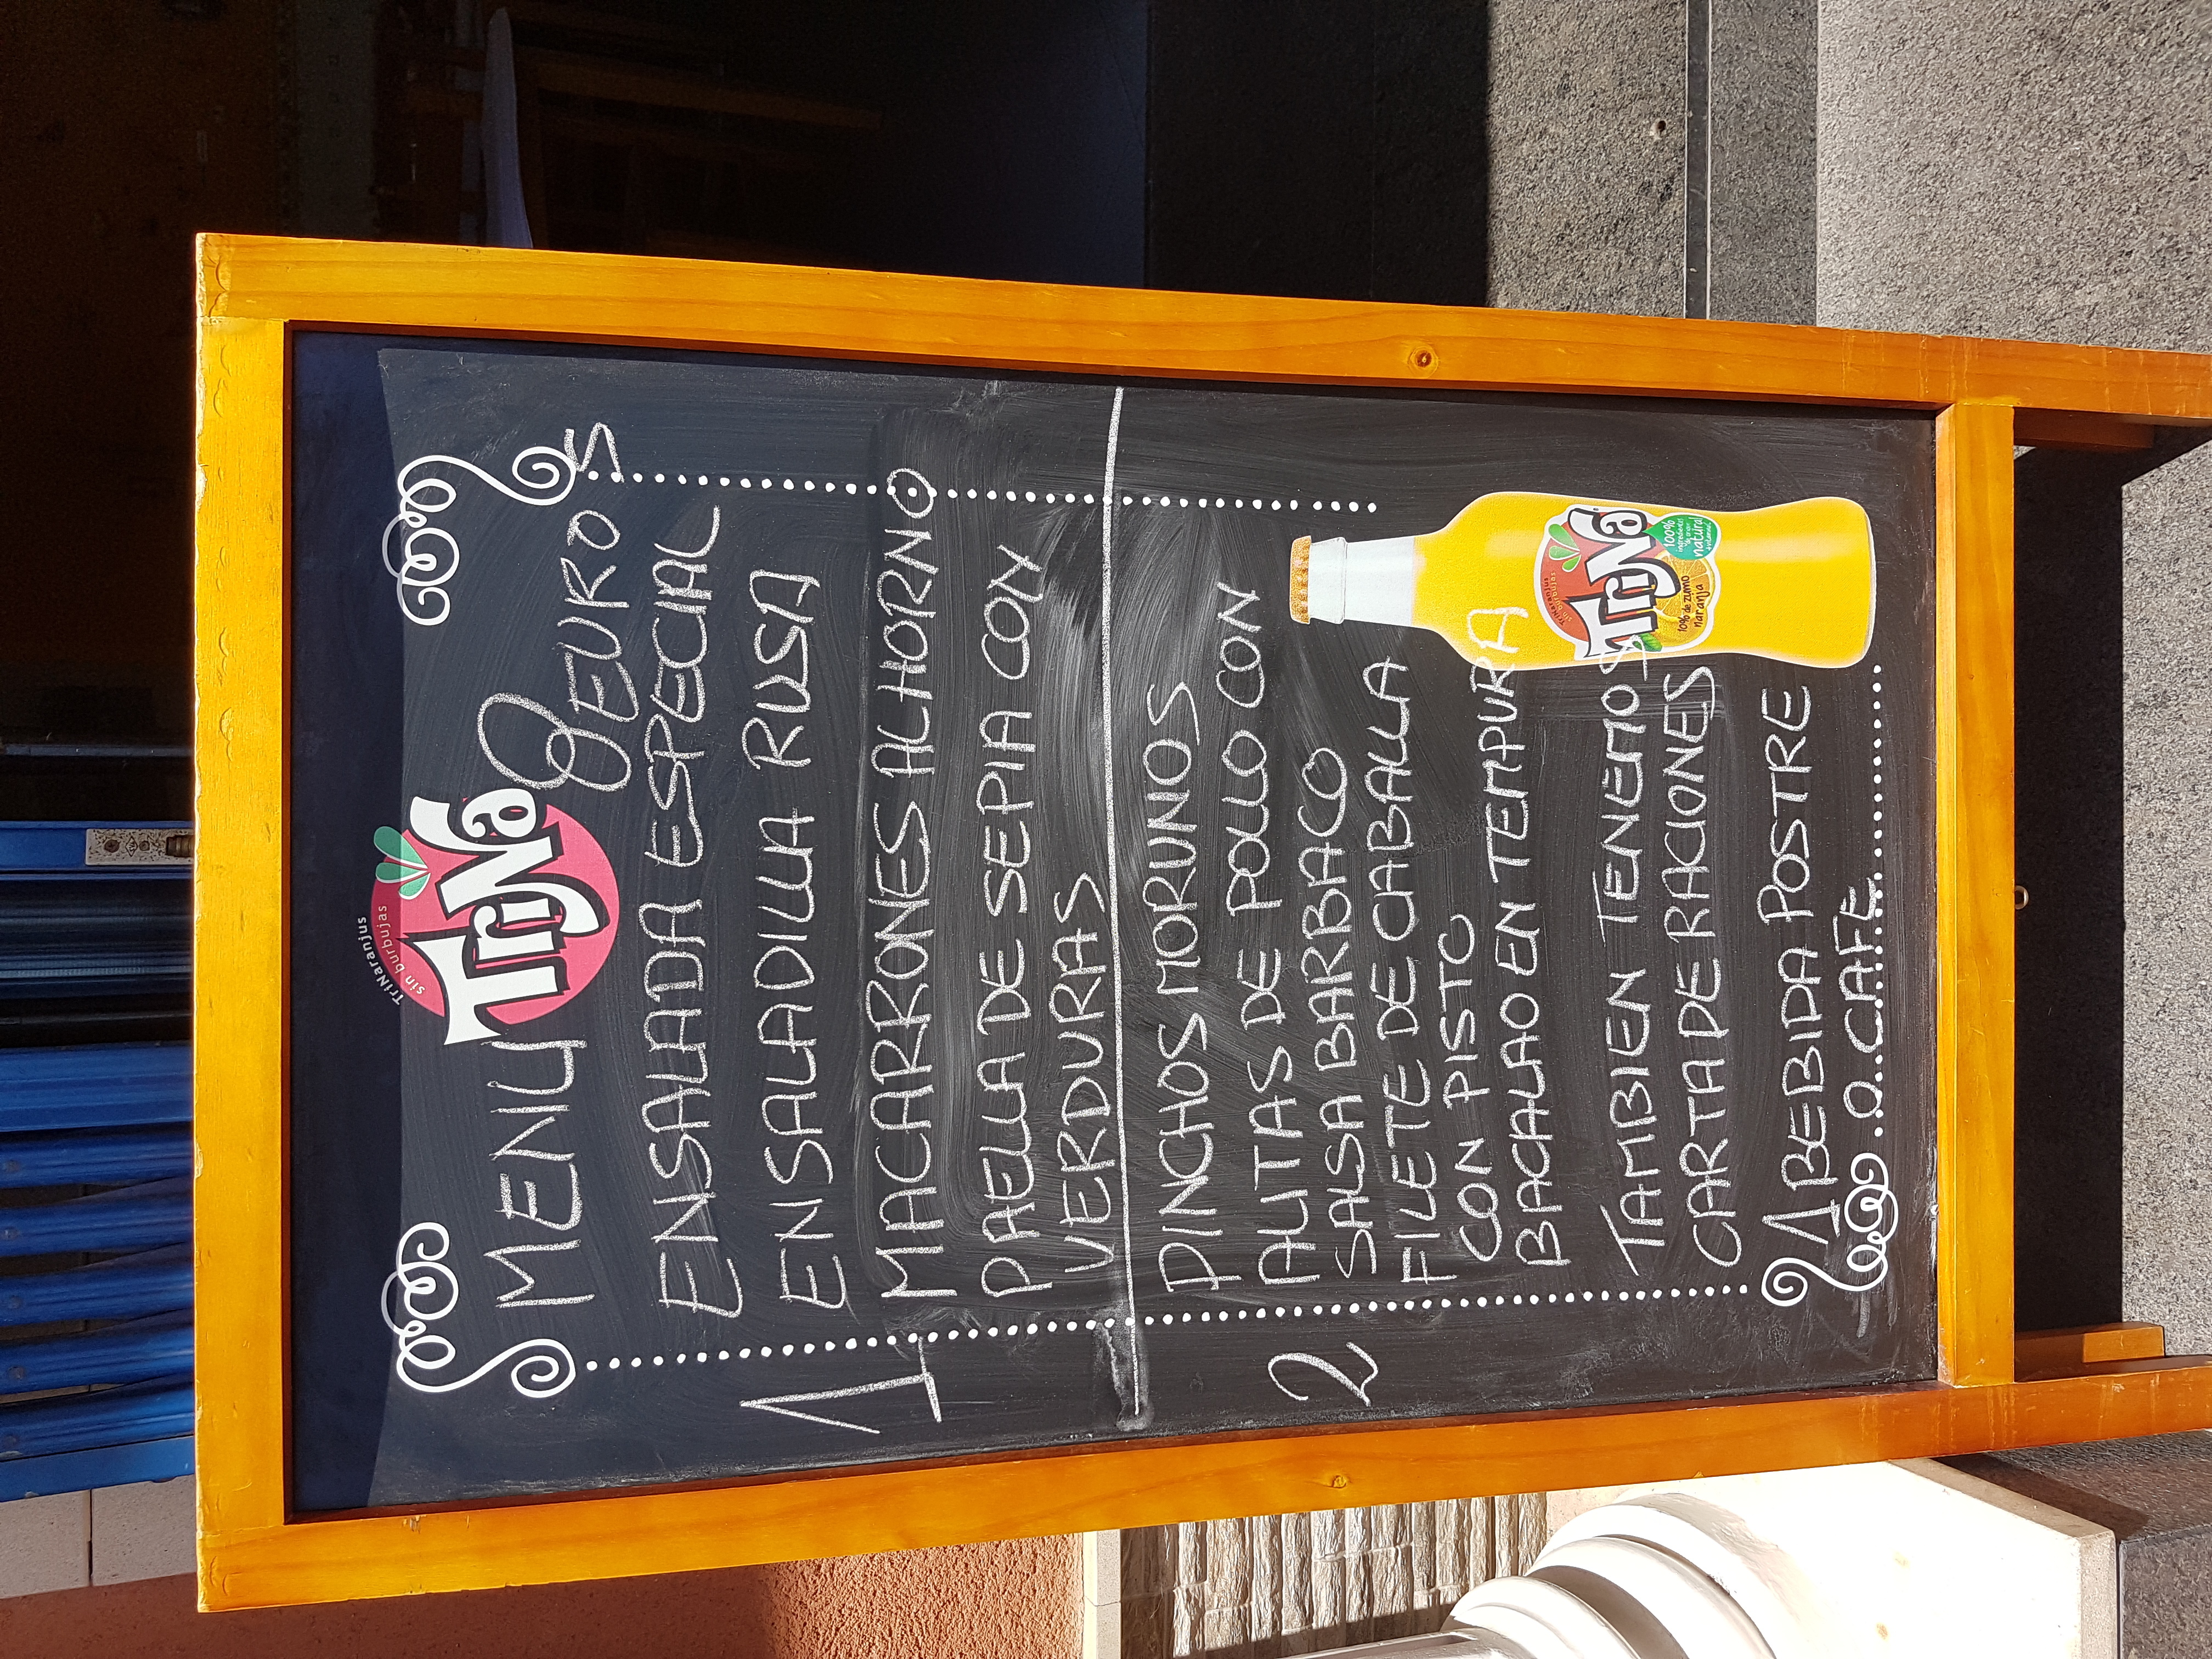 TriNaranjus
sin burbujas
TriNa
MENU 8 EUROS
1
ENSALADA ESPECIAL
ENSALADILLA RUSA
MACARRONES AL HORNO
PAELLA DE SEPIA CON
VERDURAS
2
PINCHOS MORUNOS
ALITAS DE POLLO CON
SALSA BARBACO
FILETE DE CABALLA
CON PISTO
BACALAO EN TEMPURA
TAMBIEN TENEMOS
CARTA DE RACIONES
1 BEBIDA POSTRE
O CAFE
TriNaranjus
sin burbujas
TriNa
10% de zumo
naranja
100%
natural